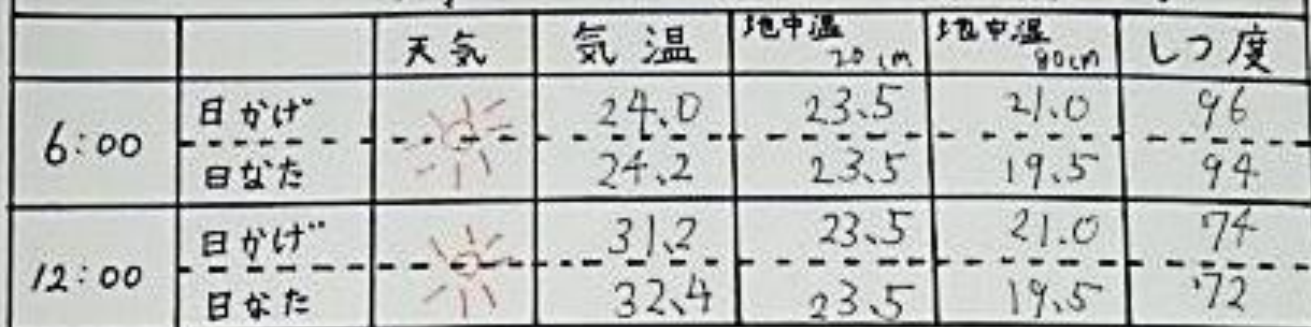 天気 気温 地中温20cm 地中温80cm しつ度
6:00 日かげ 24.0 23.5 21.0 96
日なた 24.2 23.5 19.5 94
12:00 日かげ 31.2 23.5 21.0 74
日なた 32.4 23.5 19.5 72